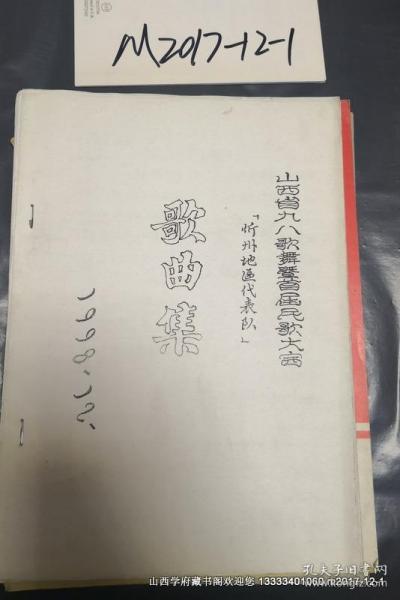 M2017-12-1
山西省九八歌舞暨首届民歌大赛
「忻州地区代表队」
歌曲集
1998.12.
孔夫子旧书网
山西学府藏书阁欢迎您 13333401060 m2017-12-1